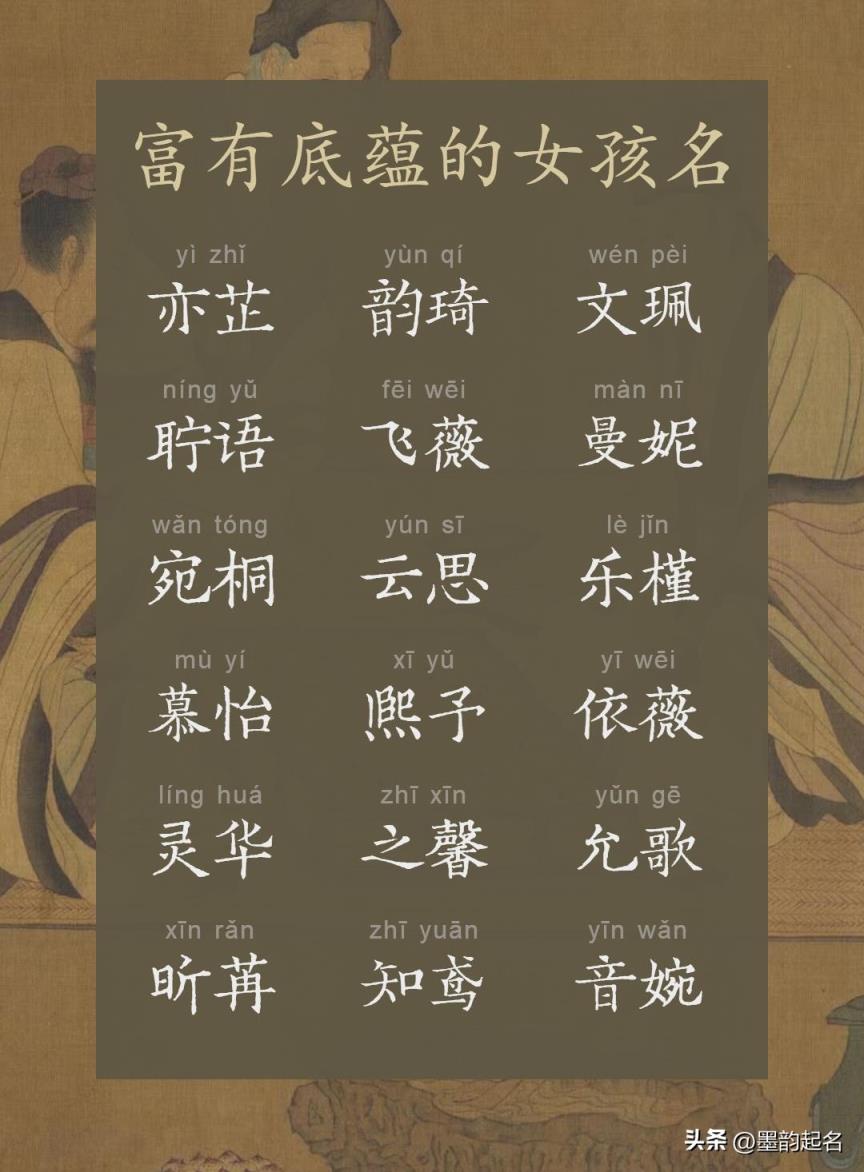 富有底蕴的女孩名
yì zhǐ yùn qí wén pèi
亦芷 韵琦 文珮
níng yǔ fēi wēi màn nī
聍语 飞薇 曼妮
wǎn tóng yún sī lè jǐn
宛桐 云思 乐槿
mù yí xī yǔ yī wēi
慕怡 熙予 依薇
líng huá zhī xīn yǔn gē
灵华 之馨 允歌
xīn rǎn zhī yuān yīn wǎn
昕苒 知鸢 音婉
头条 @墨韵起名